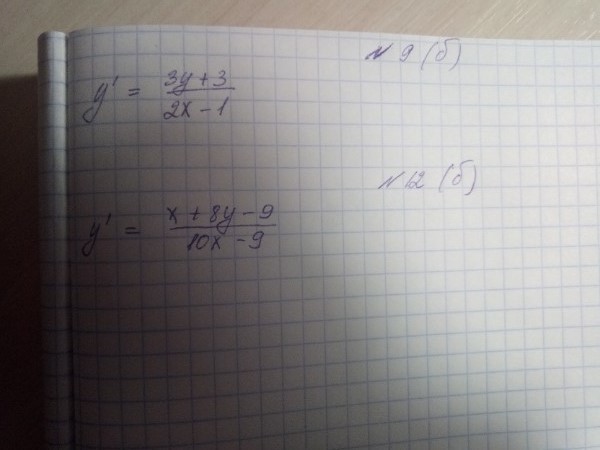 № 9 (б)
y' = (3y + 3)/(2x - 1)
№ 12 (б)
y' = (x + 8y - 9)/(10x - 9)